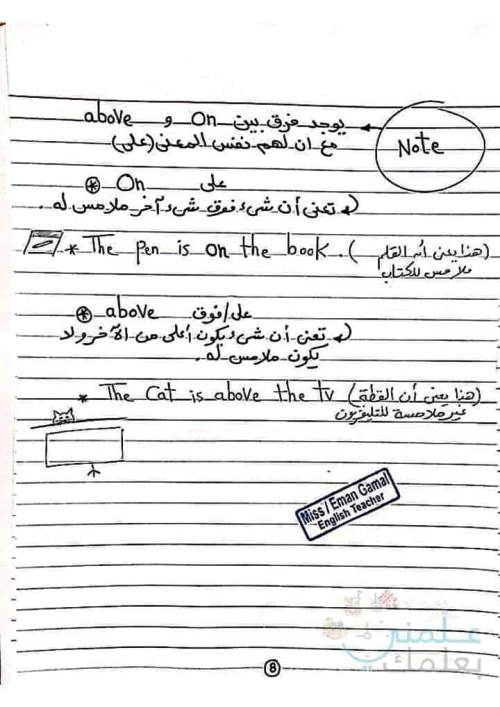 Note
يوجد فرق بين On و above
مع ان لهم نفس المعنى (على)
* On على
تعنى أن شىء فوق شىء آخر ملامس له.
* The pen is on the book. (هذا يعنى أنه القلم
ملامس للكتاب)
* above على/فوق
تعنى أن شىء يكون أعلى من الآخر ولا
يكون ملامس له.
* The Cat is above the tv (هذا يعنى أن القطة
غير ملامسة للتليفزيون)
Miss / Eman Gamal
English Teacher
علمني
بعلمك
8